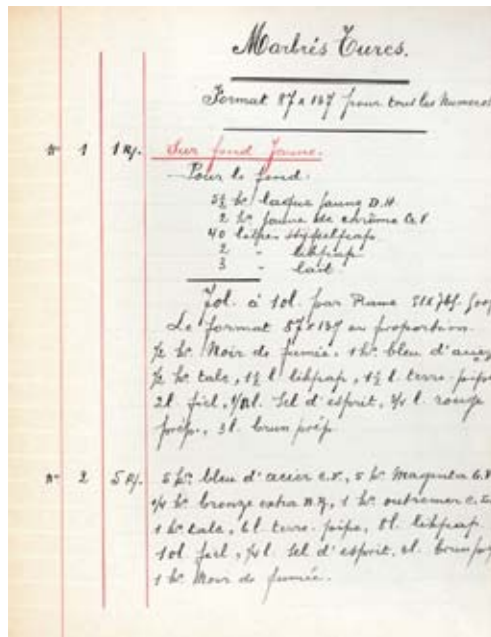 Marbrés Turcs.
Format 87 x 137 pour tous les Numeros
No 1 1 Rf. Sur fond Jaune.
Pour le fond.
5½ ko laque jaune D.H.
2 ko jaune de chrôme
40 litres styfselpap
2 - likpap
3 - lait
7ol. à 1ol. par Rame
Le format 87 x 137 en proportion.
½ ko Noir de fumée, 1 ko bleu
½ ko talc, 1½ l likpap, 1½ l. terre-pipe
2l fiel, Sel d'esprit, ¼ l rouge
prép., 3l. brun prép.
No 2 5 Rf. 5 ko bleu d'acier C.F., 5 ko Magenta
¼ ko bronze extra, 1 ko outremer
1 ko talc, 6l terre-pipe, likpap
1ol fiel, ¼l Sel d'esprit, brun
1 ko Noir de fumée.